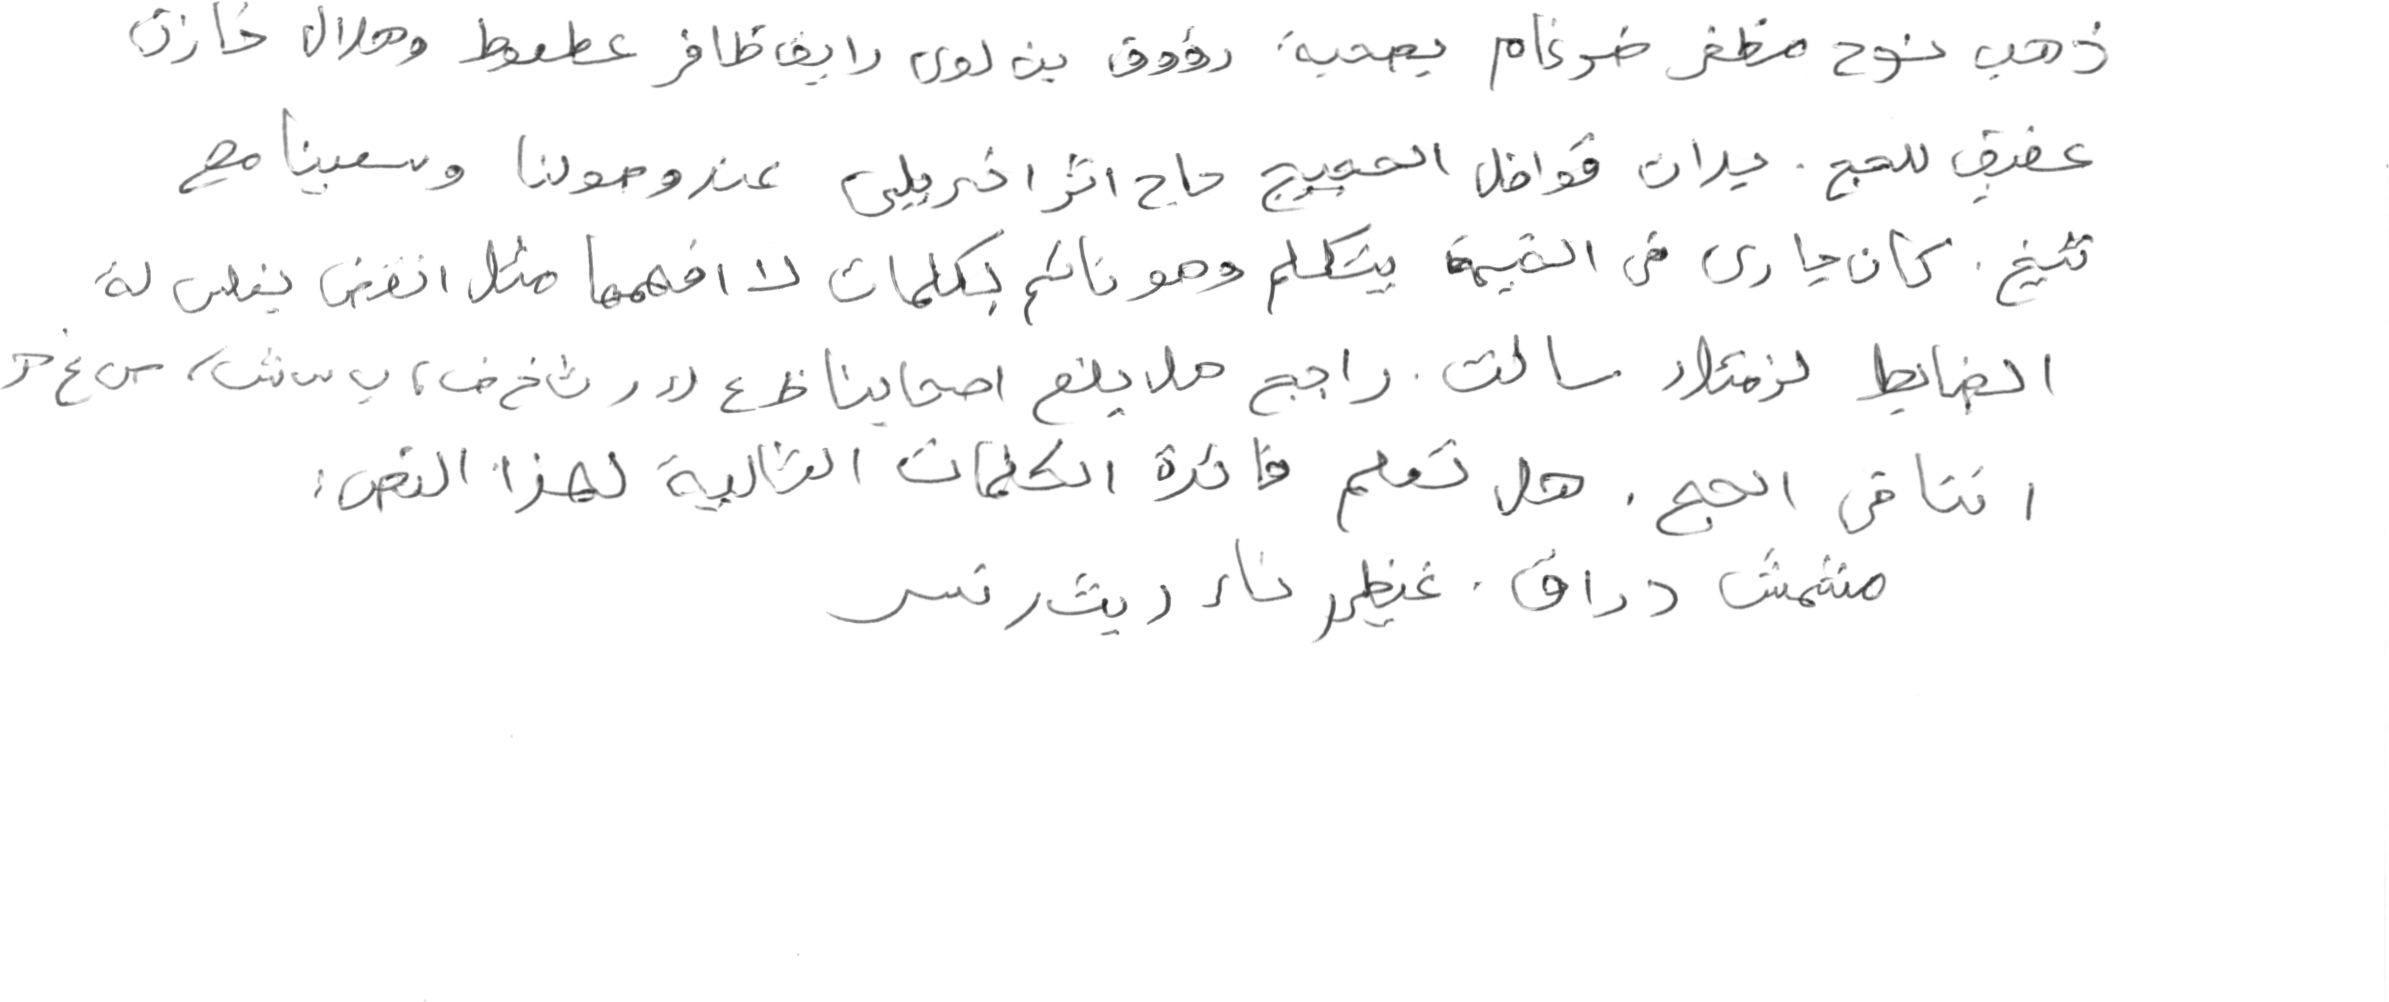 ذهب نوح مظفر ضرغام بصحبة رؤوف بن لؤى رايق ظافر عطعوط وهلال خازن
عفيف للحج . بدات قوافل الحجيج حاج اثر اخر يلبى عند وصولنا وسعينا مع
شيخ . كان جارى فى الخيمة يتكلم وهو نائم بكلمات لا افهمها مثل انقض يغلس له
الضابط لزمتلا سالت . راجح هلا بلغ اصحابنا ظ ع لا ر ث خ ض ب س ش ص غ ه
اننا فى الحج . هل تعلم فائدة الكلمات التالية لهذا النص :
مشمش دراق . غيظ ناء ريث نسر